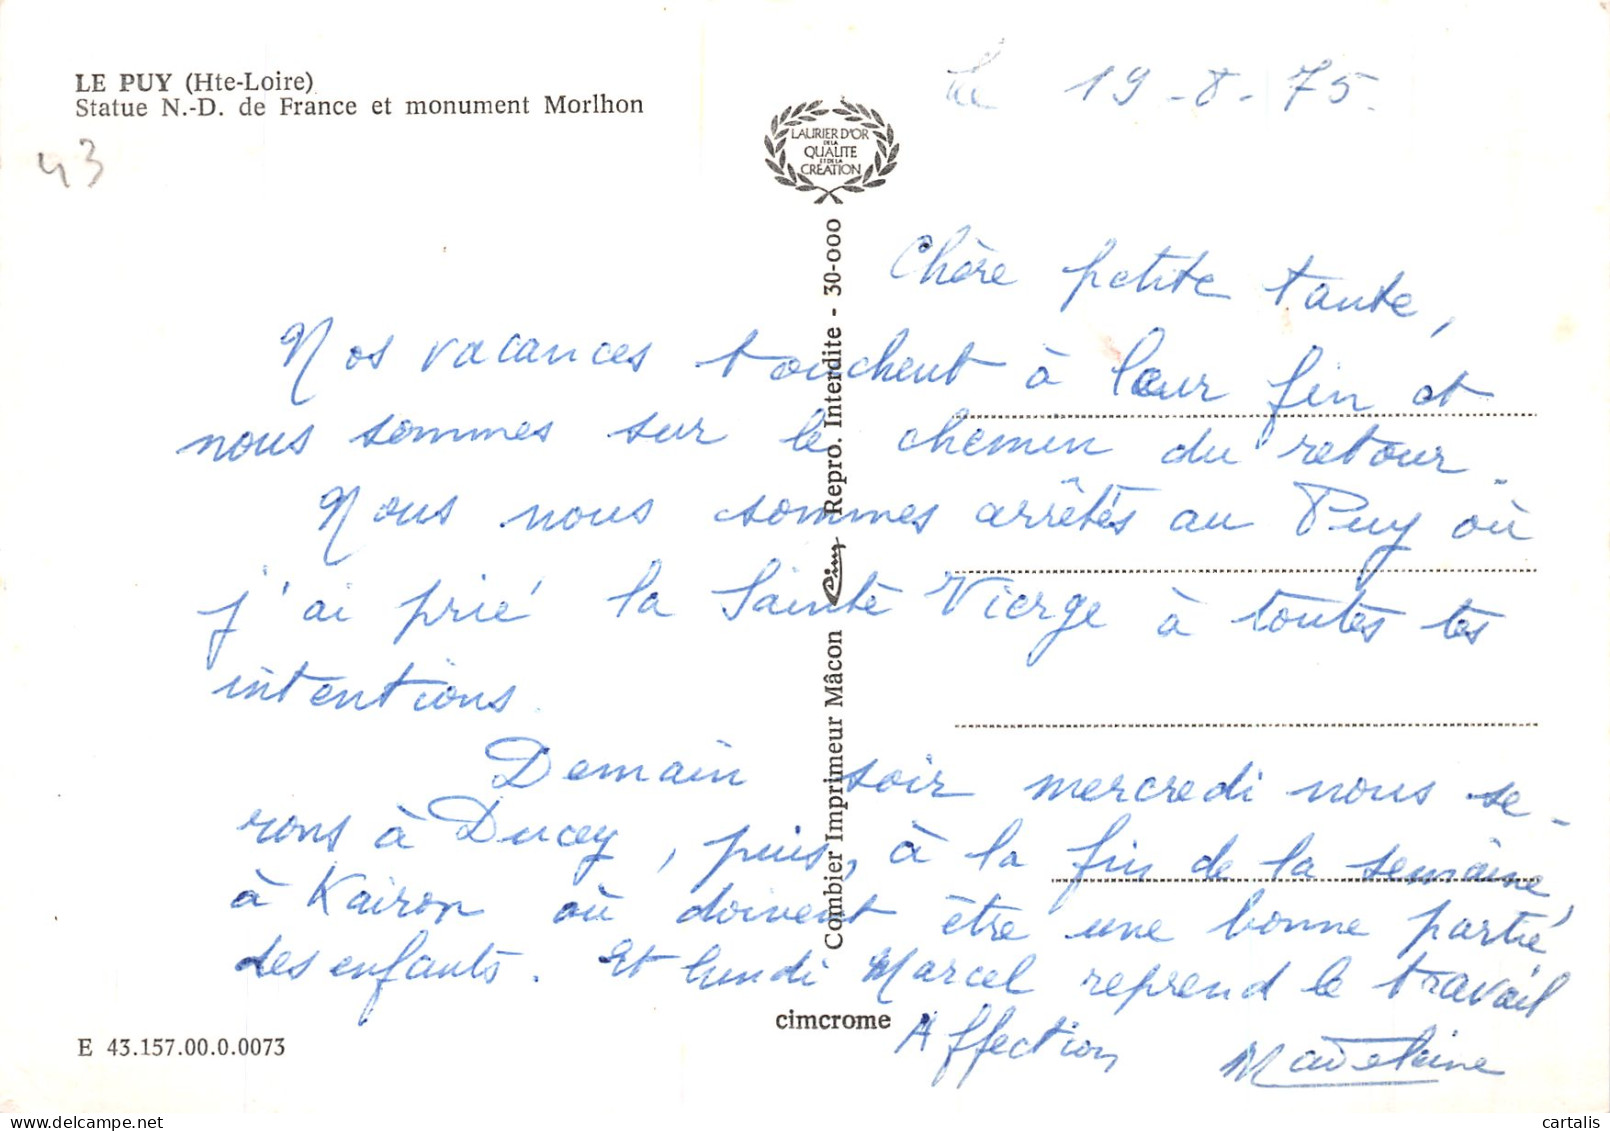 LE PUY (Hte-Loire)
Statue N.-D. de France et monument Morlhon
43
LAURIER D'OR
DE LA
QUALITE
ET DE LA
CREATION
Le 19-8-75.
Chère petite tante,
Nos vacances touchent à leur fin et
nous sommes sur le chemin du retour.
Nous nous sommes arrêtés au Puy où
j'ai prié la Sainte Vierge à toutes tes
intentions.
Demain soir mercredi nous se-
rons à Ducey, puis, à la fin de la semaine
à Kairon où doivent être une bonne partie
des enfants. Et lundi Marcel reprend le travail
Affection Madeleine
Combier Imprimeur Mâcon Cim Repro. Interdite - 30-000
cimcrome
E 43.157.00.0.0073
cartalis